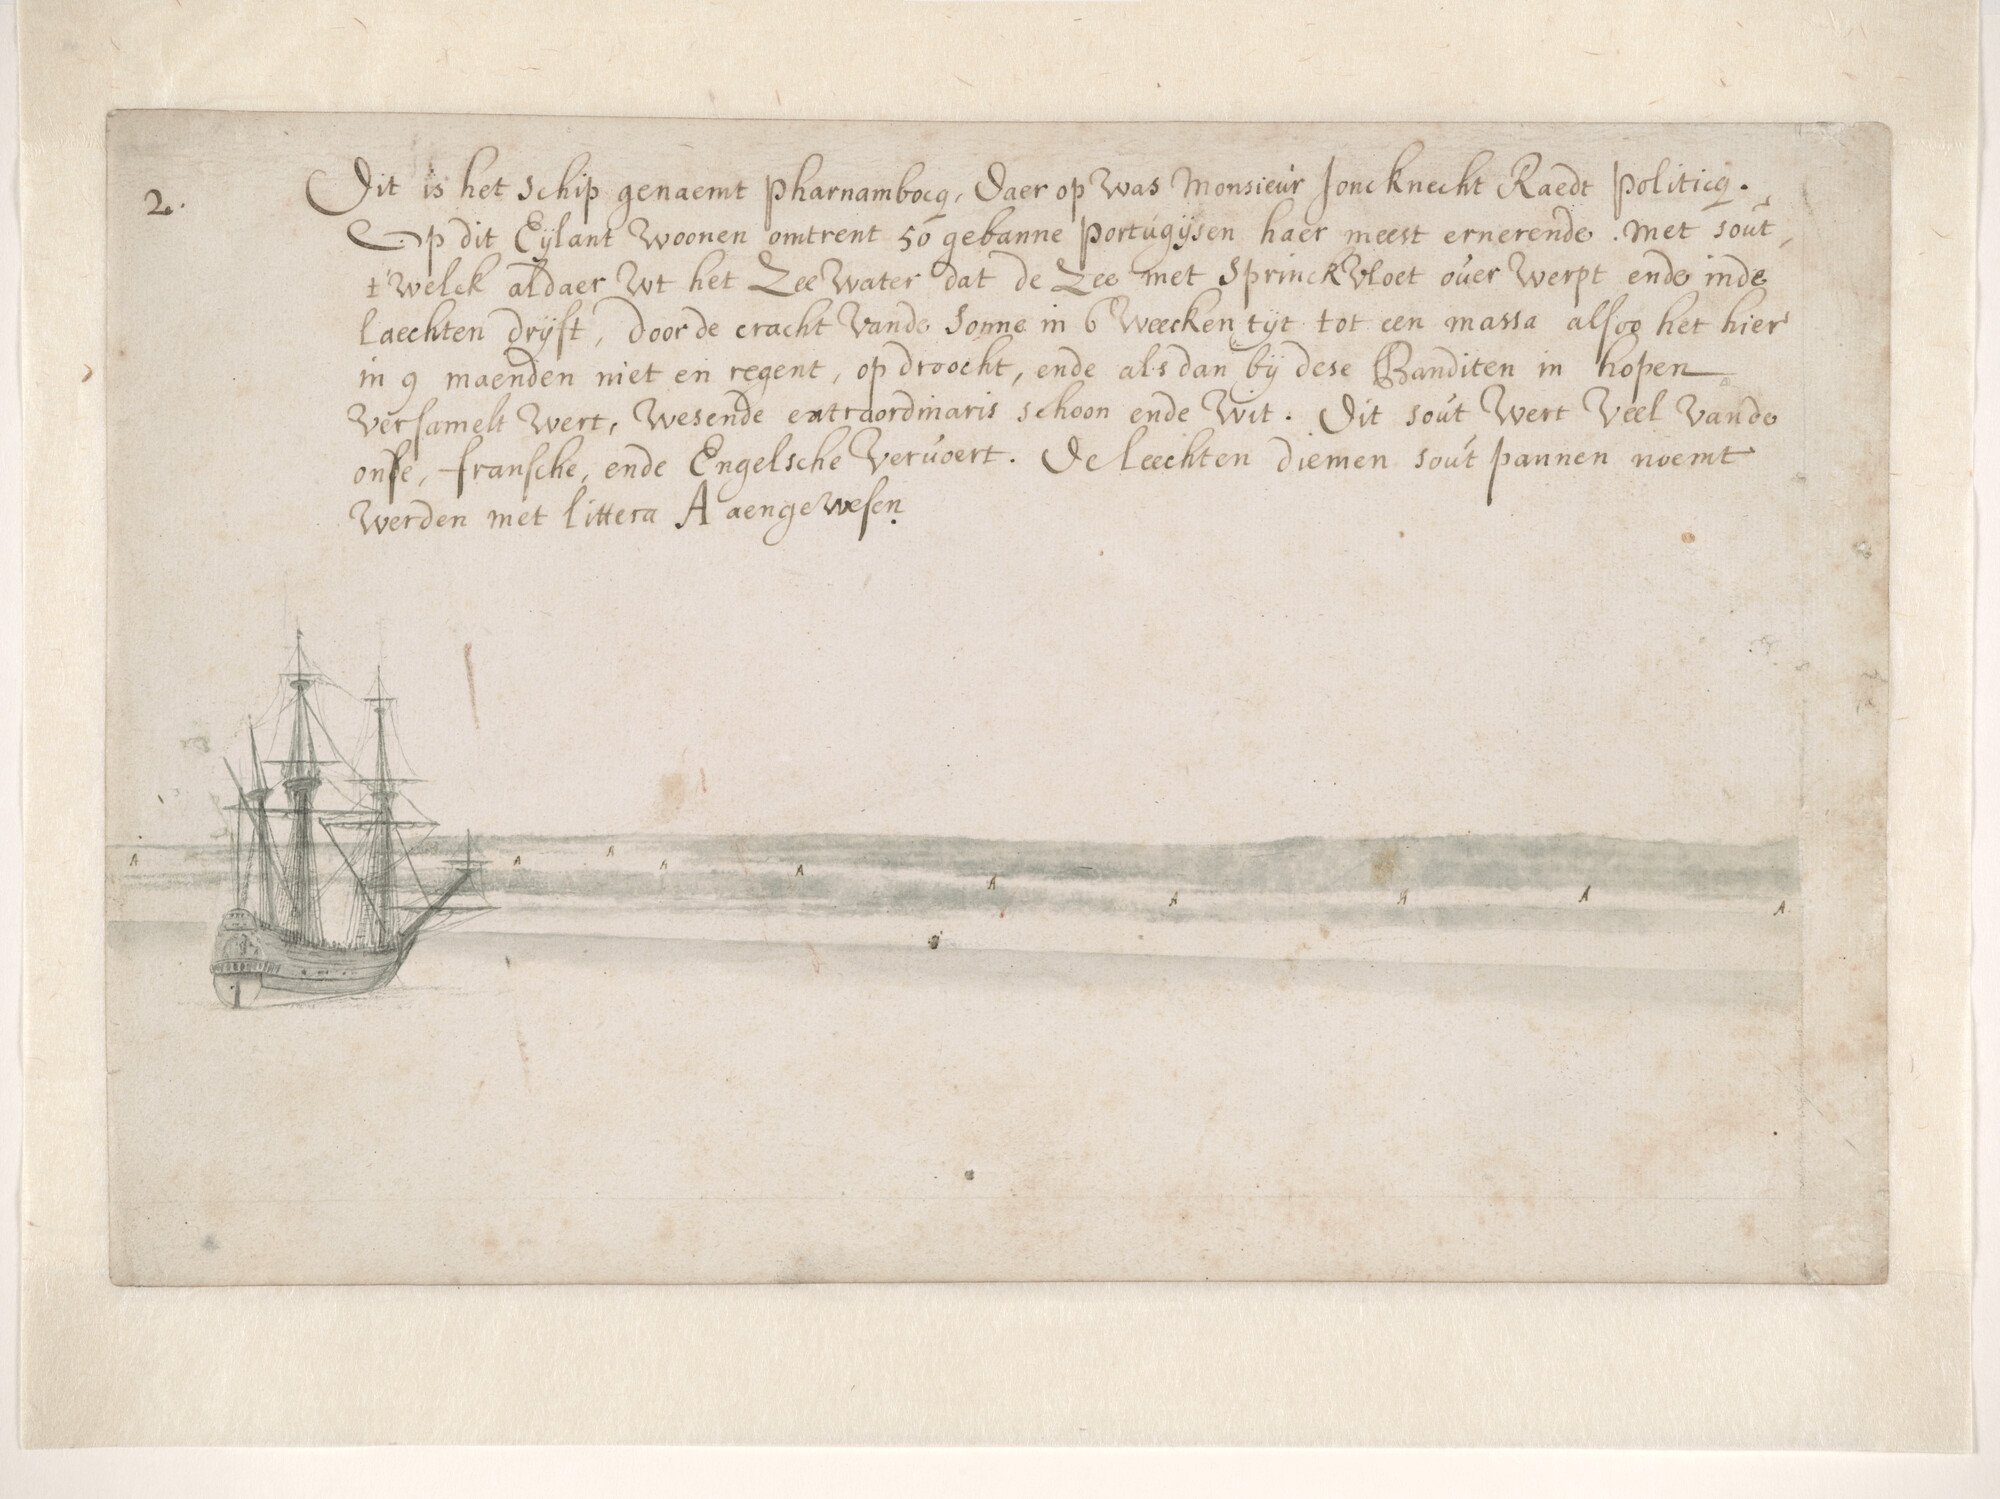 2.
Dit is het schip genaemt Pharnambocq, Daer op was Monsieur Joncknecht Raedt Politicq.
Op dit Eijlant woonen omtrent 50 gebanne Portugijsen haer meest ernerende met sout,
t'welck aldaer wt het Zee water dat de Zee met Sprinckvloet over werpt ende inde
laechten drijft, door de cracht vande Sonne in 6 weecken tijt tot een massa alsoo het hier
in 9 maenden niet en regent, op droocht, ende als dan bij dese Banditen in hopen
versamelt wert, wesende extraordinaris schoon ende wit. Dit sout wert veel vande
onse, fransche, ende Engelsche vervoert. De leechten diemen sout pannen noemt
werden met littera A aengewesen
A A A A A A A A A A A